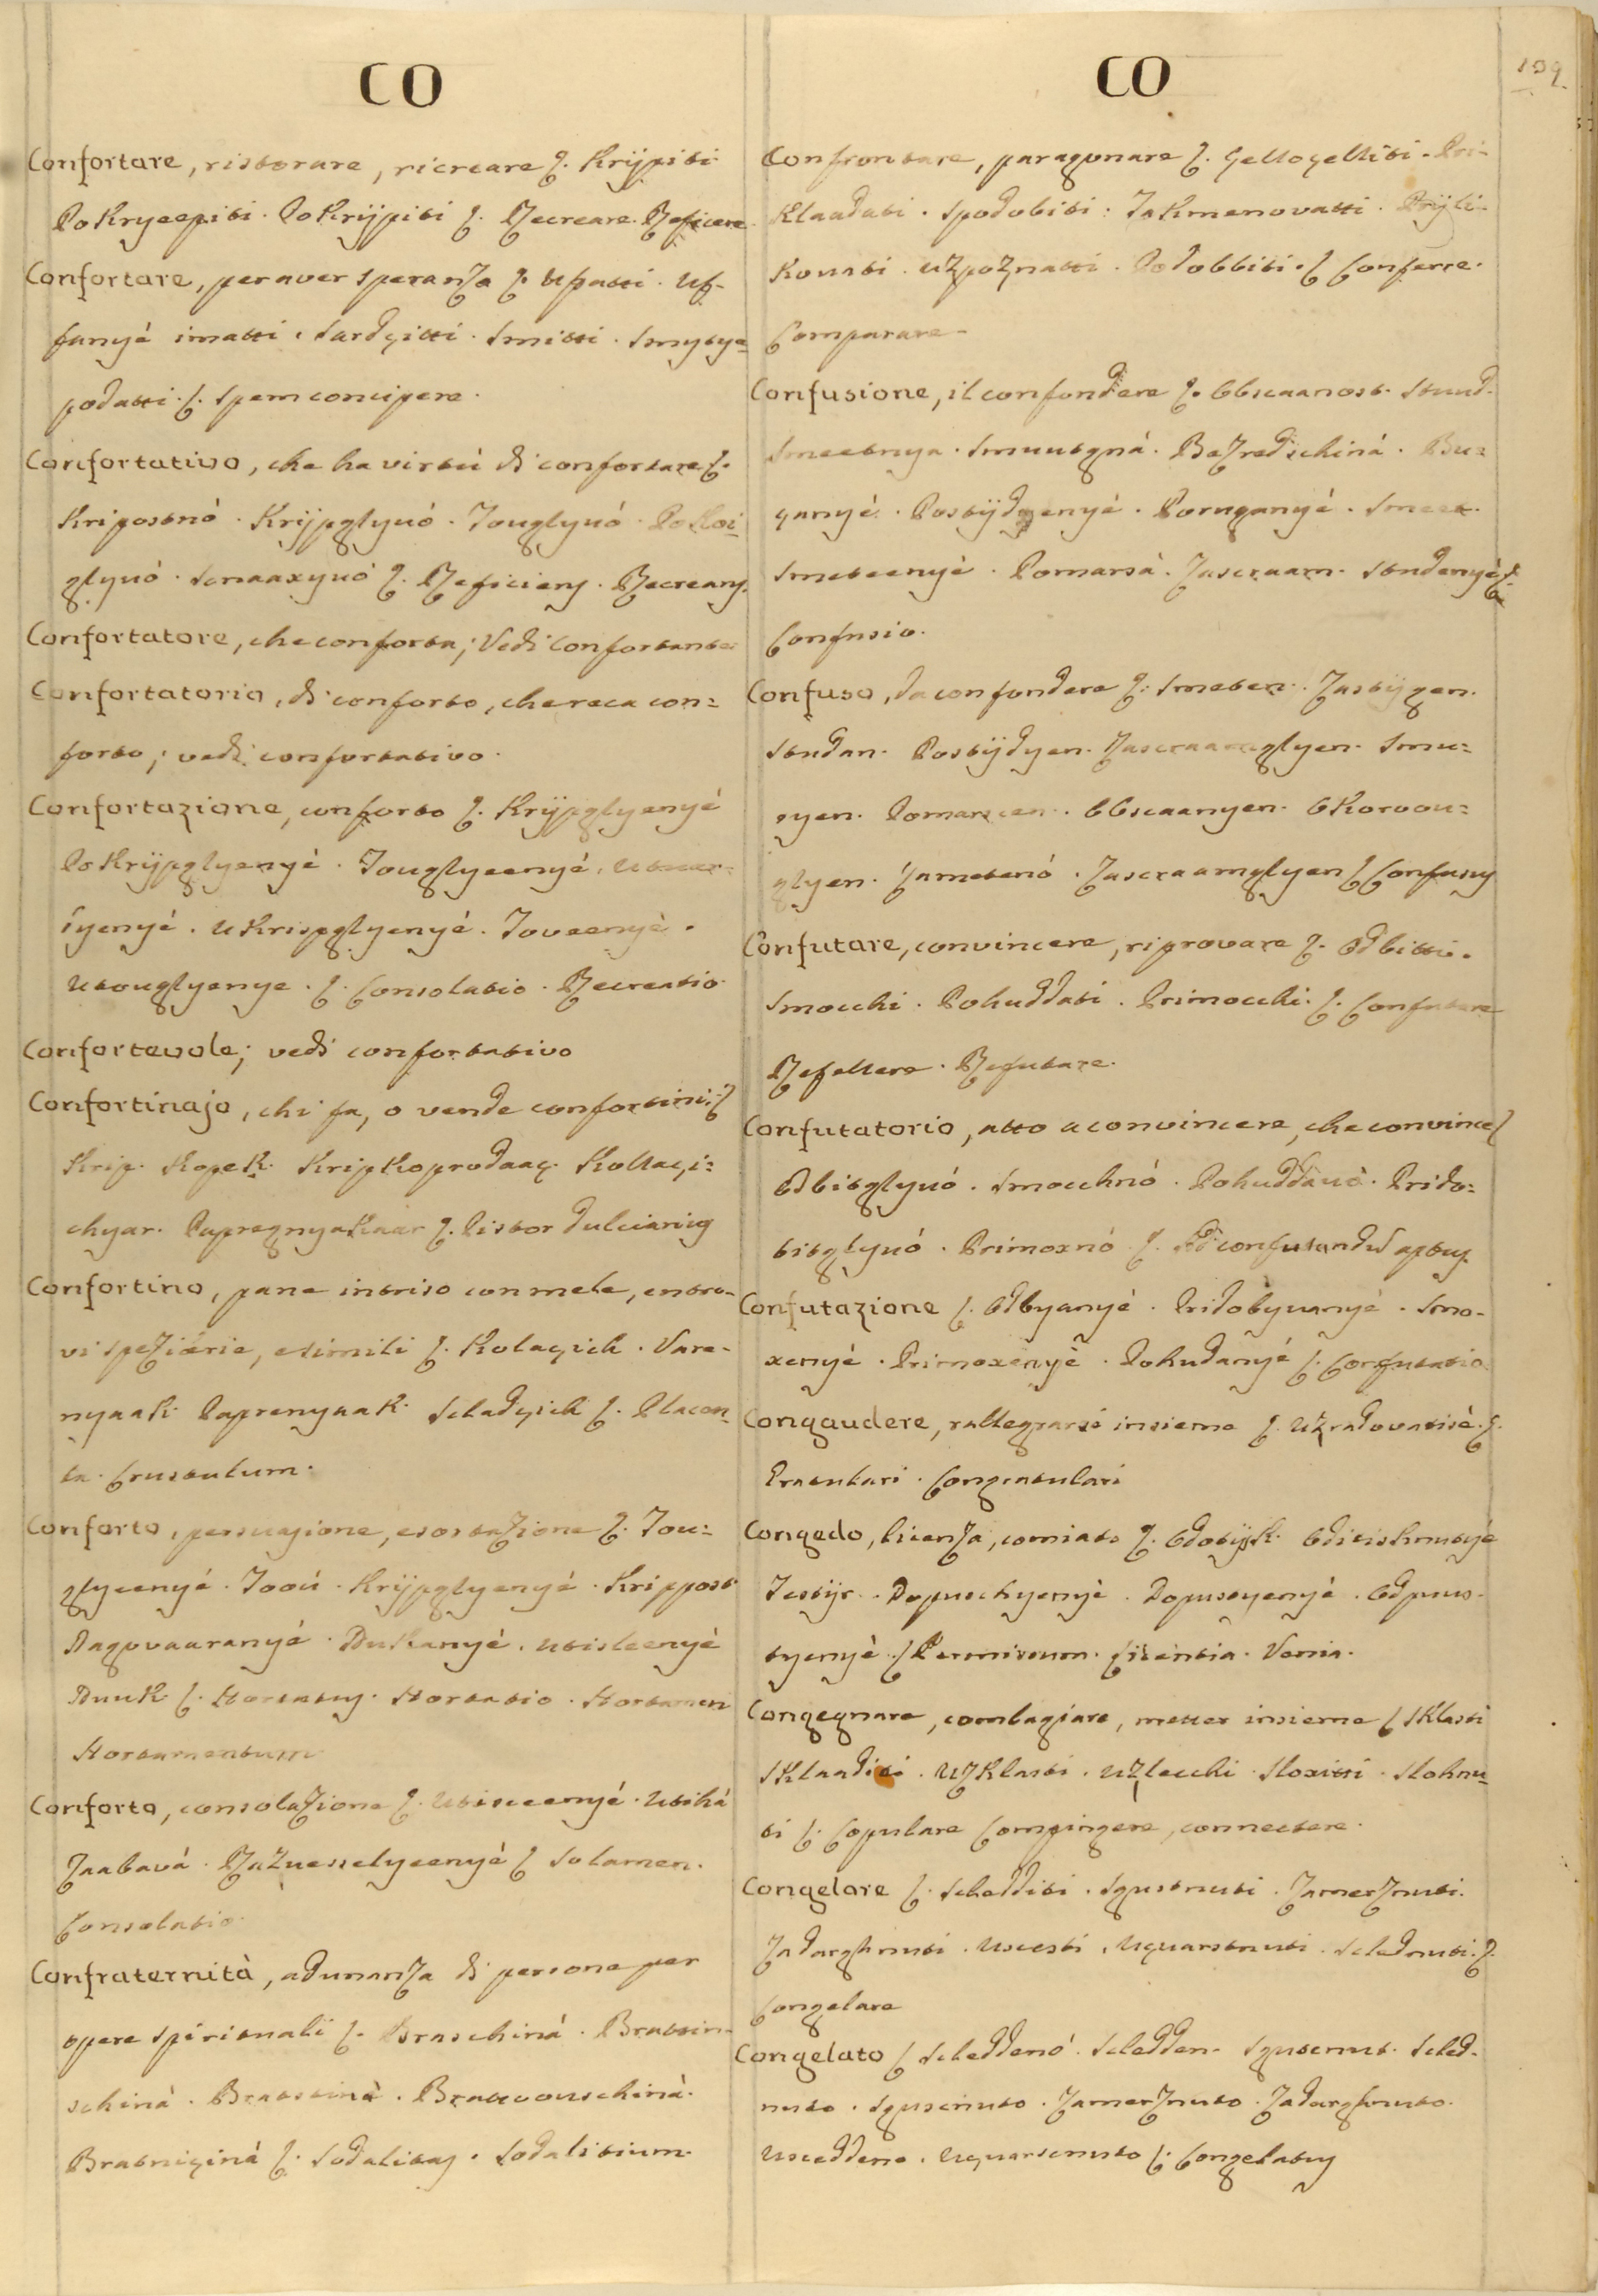 CO
Confortare, ristorare, ricreare ſ. Krijpiti
Pokryeepiti. Pokrijpiti ſ. Recreare. Reficere
Confortare, per aver speranza ſ. Uffatti. Uf-
fanyé imatti. Sardçitti. Smitti. Smyye=
podatti. ſ. Spem concipere.
Confortativo, che ha virtú di confortare ſ.
Kripostnó. Krijpglyuó. Jouglyuó.
glyuó. ſ. Reficiens. Recreans.
Confortatore, che conforta; Vedi confortante
Confortatorio, di conforto, che reca con=
forto; vedi confortativo.
Confortazione, conforto ſ. Krijpglyenyé
Pokrijpglyenyé. Jouglyeenyé.
Ukripglyenyé. Joveenyè.
Utouglyenye. ſ. Consolatio. Recreatio.
Confortevole; vedi confortativo
Confortinajo, chi fa, o vende confortini; ſ
Krip. Kopek. Kripkoprodaaç. Kollaçi=
chyar. Papregnyakaar ſ. Pistor dulciarius
Confortino, pane intriso con mele, entro-
vi spezierie, e simili ſ. Kolaçich. Vare-
nyaak. Paprenyaak. Sladçich ſ. Placen-
ta. Crustulum.
Conforto, persuasione, esortazione ſ. Jou=
glyeenyé. Jooú. Krijpglyenyé. Krippost
Nagovaaranyé. Nukanyé. Utisleenyè
Nuuk ſ. Hortatus. Hortatio. Hortamen
Hortamentum
Conforto, consolazione ſ. Utisceenyé. Utihá
Zaabavá. Razuesselyeenyé ſ. Solamen.
Consolatio.
Confraternità, adunanza di persone per
opere spirituali ſ. Braschiná. Brattin-
schinà. Bratstinà. Brattvouschinà.
Bratniçinà ſ. Sodalitas. Sodalitium.
CO
109.
Confrontare, paragonare ſ. Pri-
klaadati. Spodobiti. Jakmenovatti. Prijli-
kovati. Uzpoznatti. Podobbiti. ſ. Conferre.
Comparare.
Confusione, il confondere ſ. Obscaanost. Stuud.
Smeetnya. Smuutgná. Bezredschiná. Bu=
ganyé. Postijdgenyé. Poruganyé. Smeet.
Smeteenyé. Pomarsà. Zascraam. Studenyé ſ.
Confusio.
Confuso, da confondere ſ. Smeten. Zastijgen.
Studan. Postijdyen. Zascraamglyen. Smu=
yen. Pomarscen. Obscaanyen. Okoroou=
glyen. Zametenó. Zascraamglyen ſ. Confusus
Confutare, convincere, riprovare ſ. Odbitti.
Smocchi. Pohuddati. Primocchi. ſ. Confutare
Refellere. Refutare.
Confutatorio, atto a convincere, che convince ſ
Odbitglyuó. Smocchnó. Pohuddauò. Prido=
bitglyuó. Primoxnó ſ. Ad confutandum aptus
Confutazione ſ. Odbyanyé. Pridobyuanyé. Smo-
xenyé. Primoxenyé. Pohudanyé ſ. Confutatio.
Congaudere, rallegrarsi insieme ſ. Uzradovatisè. ſ.
Gratulari. Congratulari
Congedo, licenza, comiato ſ.
Dopuschyenyè. Dopustyenyé. Odpus-
tyenyé. ſ. Permissum. Licentia. Venia.
Congegnare, combagiare, metter insieme ſ. Sklasti
Sklaaditi. Uzklasti. Uzlecchi. Sloxitti. Slohnu-
ti ſ. Copulare Compingere, connectere.
Congelare ſ. Scledditi. Sgustnuti. Zamerznuti.
Zadarghnuti. Uscesti. Uçuarstnuti. Scladnuti. ſ.
Congelare
Congelato ſ. Scleddenó. Scledden. Sguscnut. Scled-
nuto. Sguscnuto. Zamerznuto. Zadarghnuto.
Usceddeno. Uçuarscnuto ſ. Congelatus